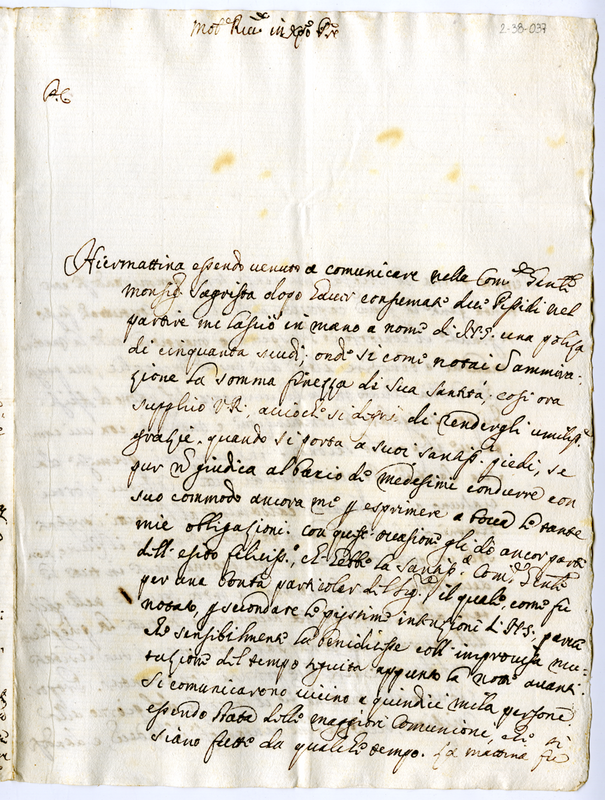 Molto Rev. in Xpo Pre
2-38-037
P.C.
Hiermattina essendo venuto a comunicare nella Com.
Monsig. Sagrista dopo haver consumati dieci Pissidi nel
partire mi lasciò in mano a nome di N.S. una poliza
di cinquanta scudi; onde si come notai d'ammira-
zione la somma finezza di sua santità, così ora
supplico V.R. acciochè si degni di rendergli umiliss.
grazie, quando si porta a suoi santiss. piedi, se
pur non giudica al bacio de medesimi condurre con
suo commodo ancora me per esprimere a bocca le tante
mie obligazioni. Con quest' occasione gli do ancor parte
dell' esito feliciss. ch' hebbe la Com.
per una bontà particolar del Sig. il quale, come fu
notato, per secondare le piissime intenzioni di N.S. parve
che sensibilmente la benedicesse coll' improvisa mu-
tazione del tempo seguita appunto la notte avanti.
Si comunicarono vicino a quindici mila persone
essendo stata delle maggiori Comunione, che si
siano fatte da qualche tempo. La mattina fù